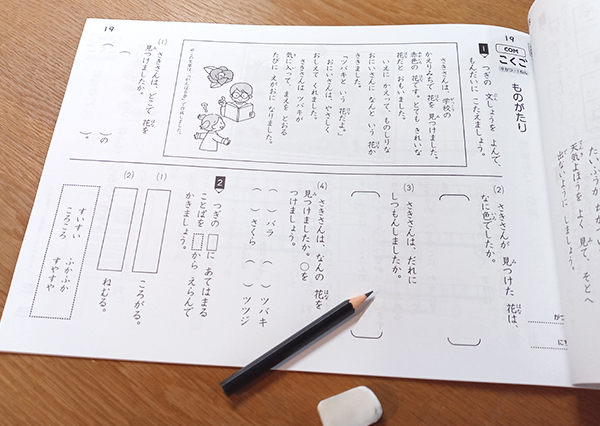 19
COM
こくご
ものがたり
1
つぎの 文しょうを よんで、
もんだいに こたえましょう。
さきさんは、学校の
かえりみちで 花を 見つけました。
赤色の 花です。とても きれいな
花だと おもいました。
いえに かえって ものしりな
おにいさんに なんと いう 花か
ききました。
「ツバキと いう 花だよ。」
おにいさんは、やさしく
おしえて くれました。
さきさんは ツバキが
気に入って まえを とおる
たびに えがおに なりました。
(1)
さきさんは、どこで 花を
見つけましたか。
( )の
( )。
19
(2)
さきさんが 見つけた 花は、
なに色でしたか。
(3)
さきさんは、だれに
しつもんしましたか。
(4)
さきさんは、なんの 花を
見つけましたか。○を
つけましょう。
( )バラ ( )ツバキ
( )さくら ( )ツツジ
2
つぎの □に あてはまる
ことばを □から えらんで
かきましょう。
(1)
ころがる。
(2)
ねむる。
すいすい ふかふか
ころころ すやすや
天気よほうを よく 見て、そとへ
出ないように しましょう。